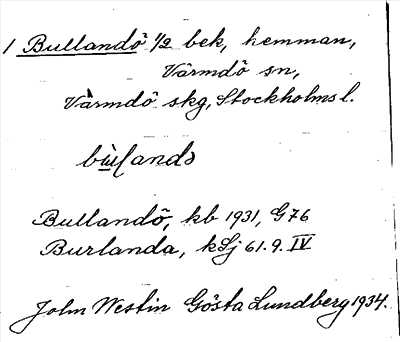 1 Bullandö 1/2 bek, hemman,
Värmdö sn,
Värmdö skg, Stockholms l.
Bullandö, kb 1931, G76
Burlanda, kLj 61.9. IV
John Westin Gösta Lundberg 1934.